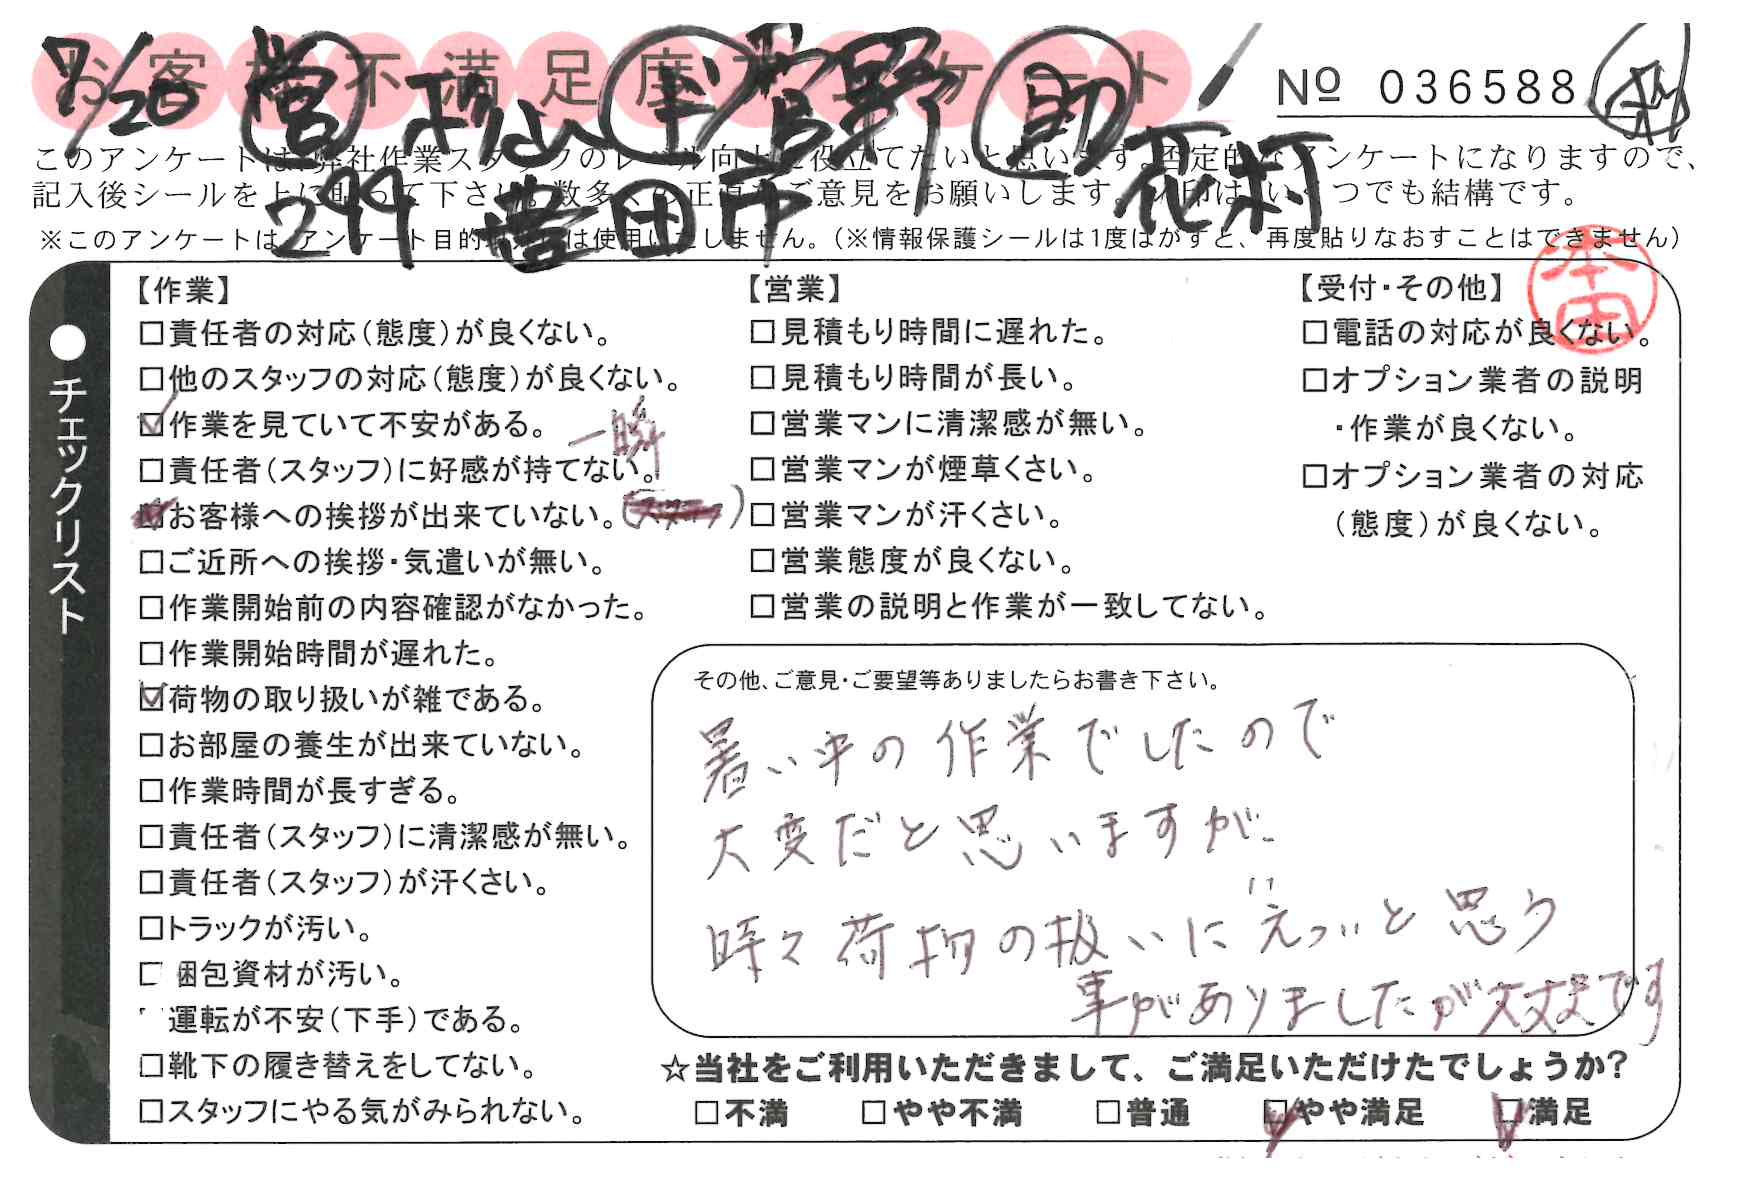 お客様不満足度アンケート
7/20 営 杉山 菅野 助 花村
299 豊田市
№ 036588
このアンケートは、弊社作業スタッフのレベル向上に役立てたいと思います。否定的なアンケートになりますので、
記入後シールを上に貼って下さい。数多くの正直なご意見をお願いします。レ印は、いくつでも結構です。
※このアンケートは、アンケート目的以外には使用いたしません。（※情報保護シールは1度はがすと、再度貼りなおすことはできません）
本田
●チェックリスト
【作業】
□責任者の対応（態度）が良くない。
□他のスタッフの対応（態度）が良くない。
☑作業を見ていて不安がある。 一瞬
□責任者（スタッフ）に好感が持てない。
☑お客様への挨拶が出来ていない。
□ご近所への挨拶・気遣いが無い。
□作業開始前の内容確認がなかった。
□作業開始時間が遅れた。
☑荷物の取り扱いが雑である。
□お部屋の養生が出来ていない。
□作業時間が長すぎる。
□責任者（スタッフ）に清潔感が無い。
□責任者（スタッフ）が汗くさい。
□トラックが汚い。
□梱包資材が汚い。
運転が不安（下手）である。
□靴下の履き替えをしてない。
□スタッフにやる気がみられない。
【営業】
□見積もり時間に遅れた。
□見積もり時間が長い。
□営業マンに清潔感が無い。
□営業マンが煙草くさい。
□営業マンが汗くさい。
□営業態度が良くない。
□営業の説明と作業が一致してない。
【受付・その他】
□電話の対応が良くない。
□オプション業者の説明
・作業が良くない。
□オプション業者の対応
（態度）が良くない。
その他、ご意見・ご要望等ありましたらお書き下さい。
暑い中の作業でしたので
大変だと思いますが、
時々荷物の扱いに"えっ"と思う
事がありましたが大丈夫です
☆当社をご利用いただきまして、ご満足いただけたでしょうか？
□不満 □やや不満 □普通 ☑やや満足 ☑満足